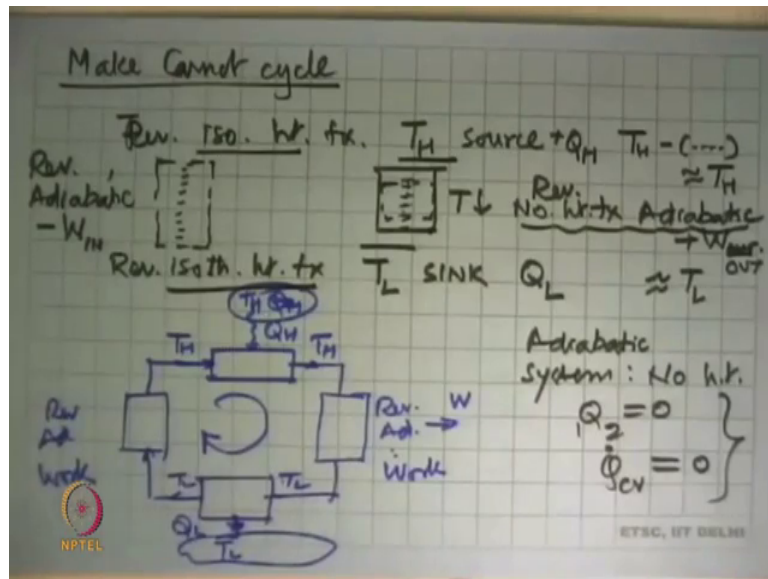 Make Carnot cycle
Rev. iso. ht. tx. T_H source + Q_H T_H - (....)
≈ T_H
Rev.
Adiabatic
- W_IN
T↓
Rev.
No ht. tx Adiabatic
+ W OUT
Rev. isoth. ht. tx T_L SINK Q_L ≈ T_L
T_H
Q_H
T_H T_H
Rev
Ad
Work
Rev.
Ad. → W
Work
T_L T_L
Q_L
T_L
Adiabatic
System: No h.t.
₁Q₂ = 0
Q̇_CV = 0
NPTEL
ETSC, IIT DELHI